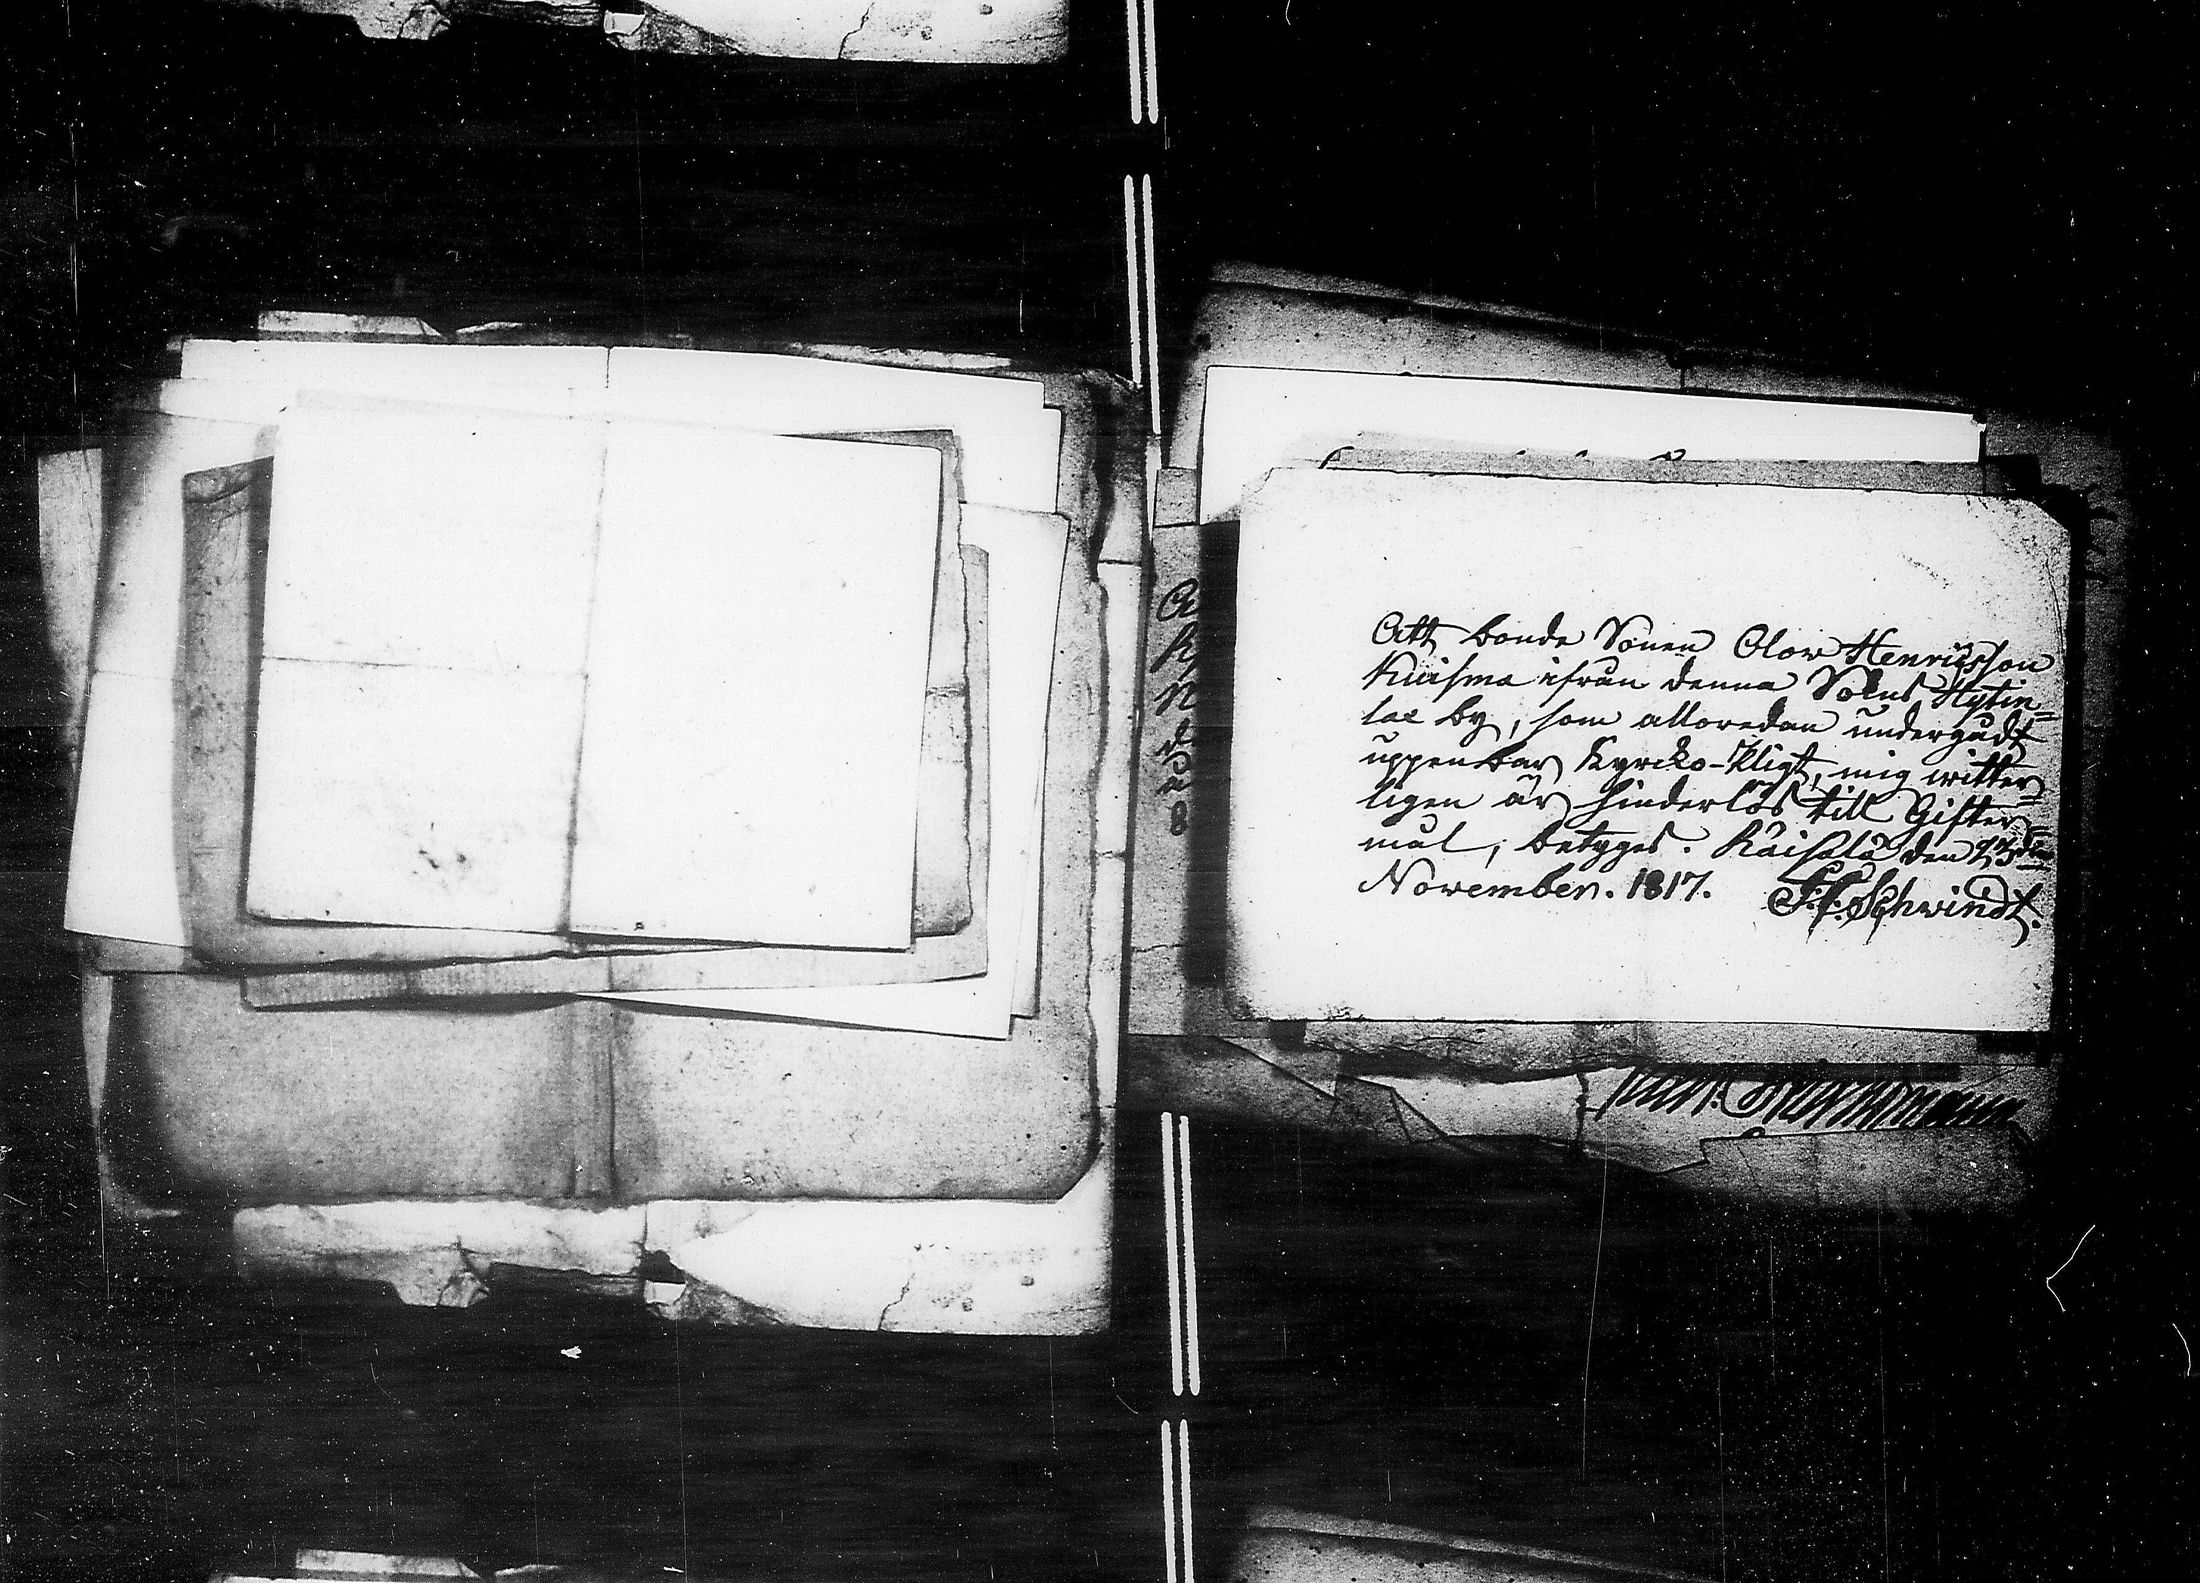 Att bonde Sonen Olow Henricsson
Kuisma ifrån denna Sokns Hytin=
lax by, som alloredan undergådt
uppenbar Kyrcko-Pligt, mig witter=
ligen är hinderlös till Gifter=
mål, betyges. Räisälä den 23die
November. 1817. Schwindt.